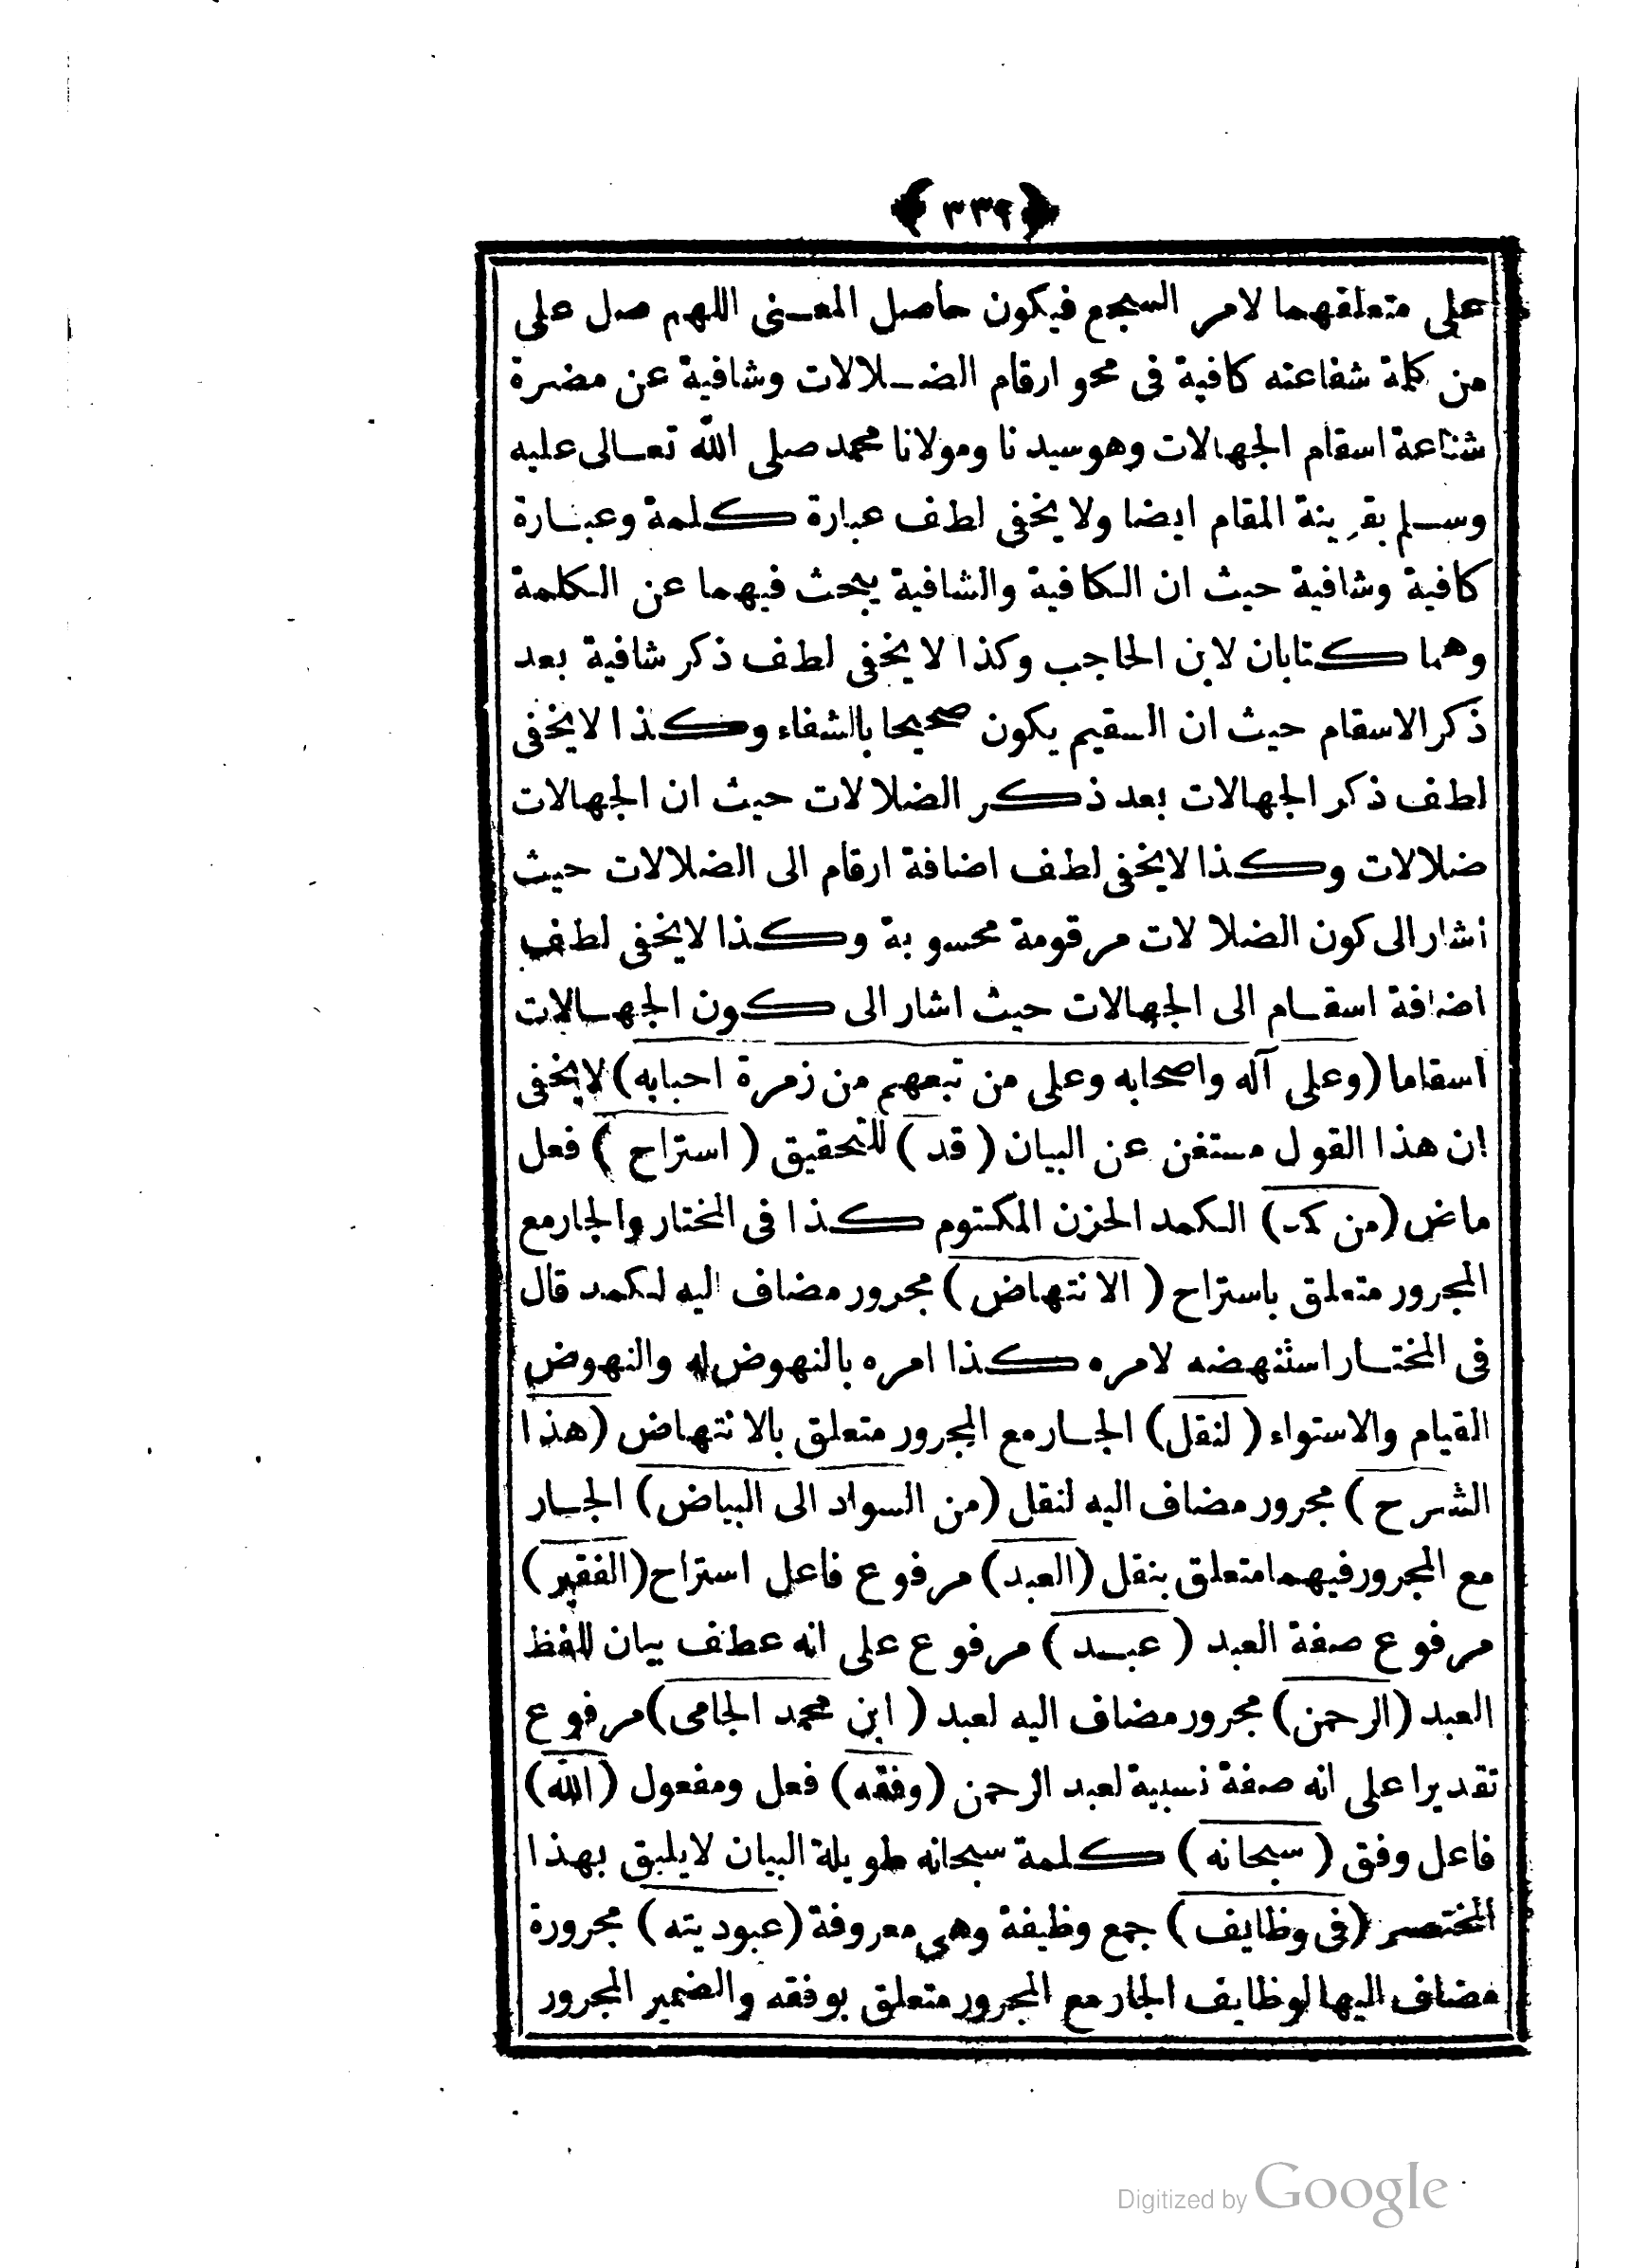 ﴿ ٣٣٩ ﴾
على متعلقهما لامر السجع فيكون حاصل المعنى اللهم صل على
من كلة شفاعته كافية فى محو ارقام الضلالات وشافية عن مضرة
شناعة اسقام الجهالات وهو سيدنا ومولانا محمد صلى الله تعالى عليه
وسلم بقرينة المقام ايضا ولا يخفى لطف عبارة كلمة وعبارة
كافية وشافية حيث ان الكافية والشافية يبحث فيهما عن الكلمة
وهما كتابان لابن الحاجب وكذا لا يخفى لطف ذكر شافية بعد
ذكر الاسقام حيث ان السقيم يكون صحيحا بالشفاء وكذا لا يخفى
لطف ذكر الجهالات بعد ذكر الضلالات حيث ان الجهالات
ضلالات وكذا لا يخفى لطف اضافة ارقام الى الضلالات حيث
اشار الى كون الضلالات مرقومة محسوبة وكذا لا يخفى لطف
اضافة اسقام الى الجهالات حيث اشار الى كون الجهالات
اسقاما (وعلى آله واصحابه وعلى من تبعهم من زمرة احبابه) لا يخفى
ان هذا القول مستغن عن البيان (قد) للتحقيق (استراح) فعل
ماض (من كد) الكمد الحزن المكتوم كذا فى المختار والجار مع
المجرور متعلق باستراح (الانتهاض) مجرور مضاف اليه لكمد قال
فى المختار استنهضه لامره كذا امره بالنهوض له والنهوض
القيام والاستواء (لنقل) الجار مع المجرور متعلق بالانتهاض (هذا
الشرح) مجرور مضاف اليه لنقل (من السواد الى البياض) الجار
مع المجرور فيهما متعلق بنقل (العبد) مرفوع فاعل استراح (الفقير)
مرفوع صفة العبد (عبد) مرفوع على انه عطف بيان للفظ
العبد (الرحمن) مجرور مضاف اليه لعبد (ابن محمد الجامى) مرفوع
تقديرا على انه صفة نسبية لعبد الرحمن (وفقه) فعل ومفعول (الله)
فاعل وفق (سبحانه) كلمة سبحانه طويلة البيان لا يليق بهذا
المختصر (فى وظايف) جمع وظيفة وهى معروفة (عبوديته) مجرورة
مضاف اليها لوظايف الجار مع المجرور متعلق بوفقه والضمير المجرور
Digitized by Google